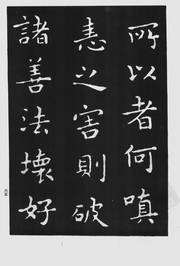 所以者何嗔
恚之害則破
諸善法壞好